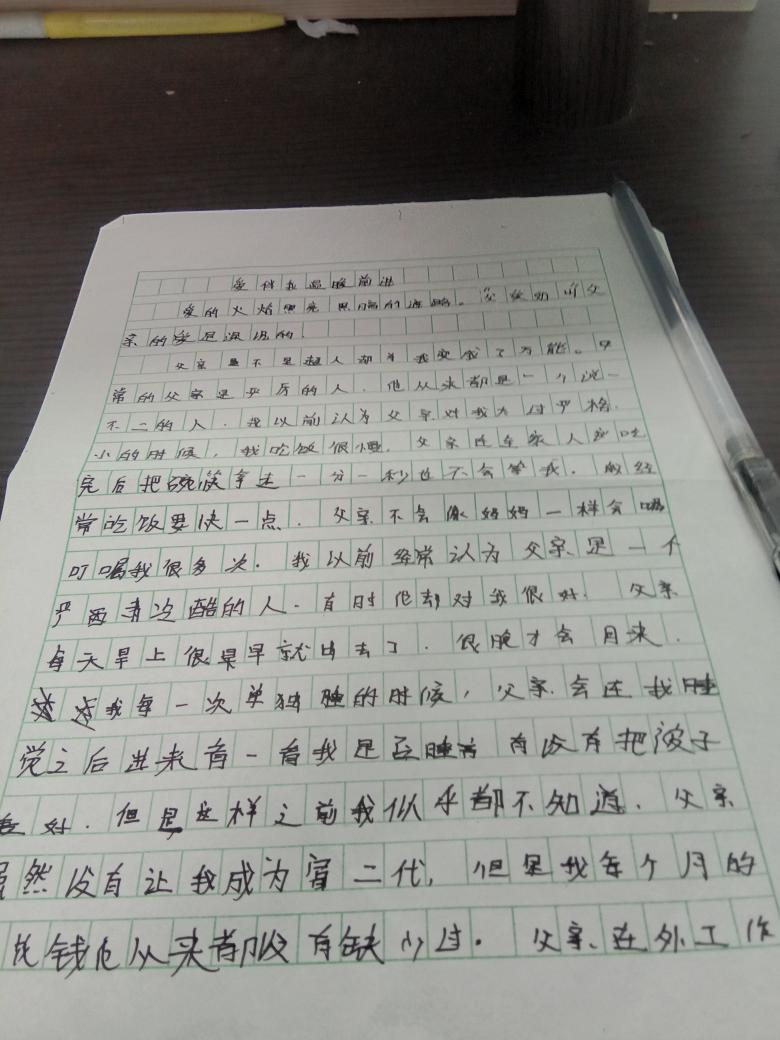 爱伴我温暖前进
爱的火焰照亮黑暗的道路。父爱如山父
亲的爱是深沉的.
父亲虽不是超人却为我变成了万能。平
常的父亲是严厉的人.他从来都是一个说一
不二的人.我以前认为父亲对我太过严格.
小的时候,我吃饭很慢.父亲在全家人都吃
完后把碗筷拿走一分一秒也不会等我.
常吃饭要快一点.父亲不会像妈妈一样会嘱
叮嘱我很多次.我以前经常认为父亲是一个
严而有冷酷的人.有时他却对我很好.父亲
每天早上很早早就出去了.很晚才会回来.
我每一次单独睡的时候,父亲会在我睡
觉之后进来看一看我是否睡着有没有把被子
盖好.但是这样之前我似乎都不知道.父亲
虽然没有让我成为富二代,但是我每个月的
花钱他从来都没有缺少过.父亲在外工作